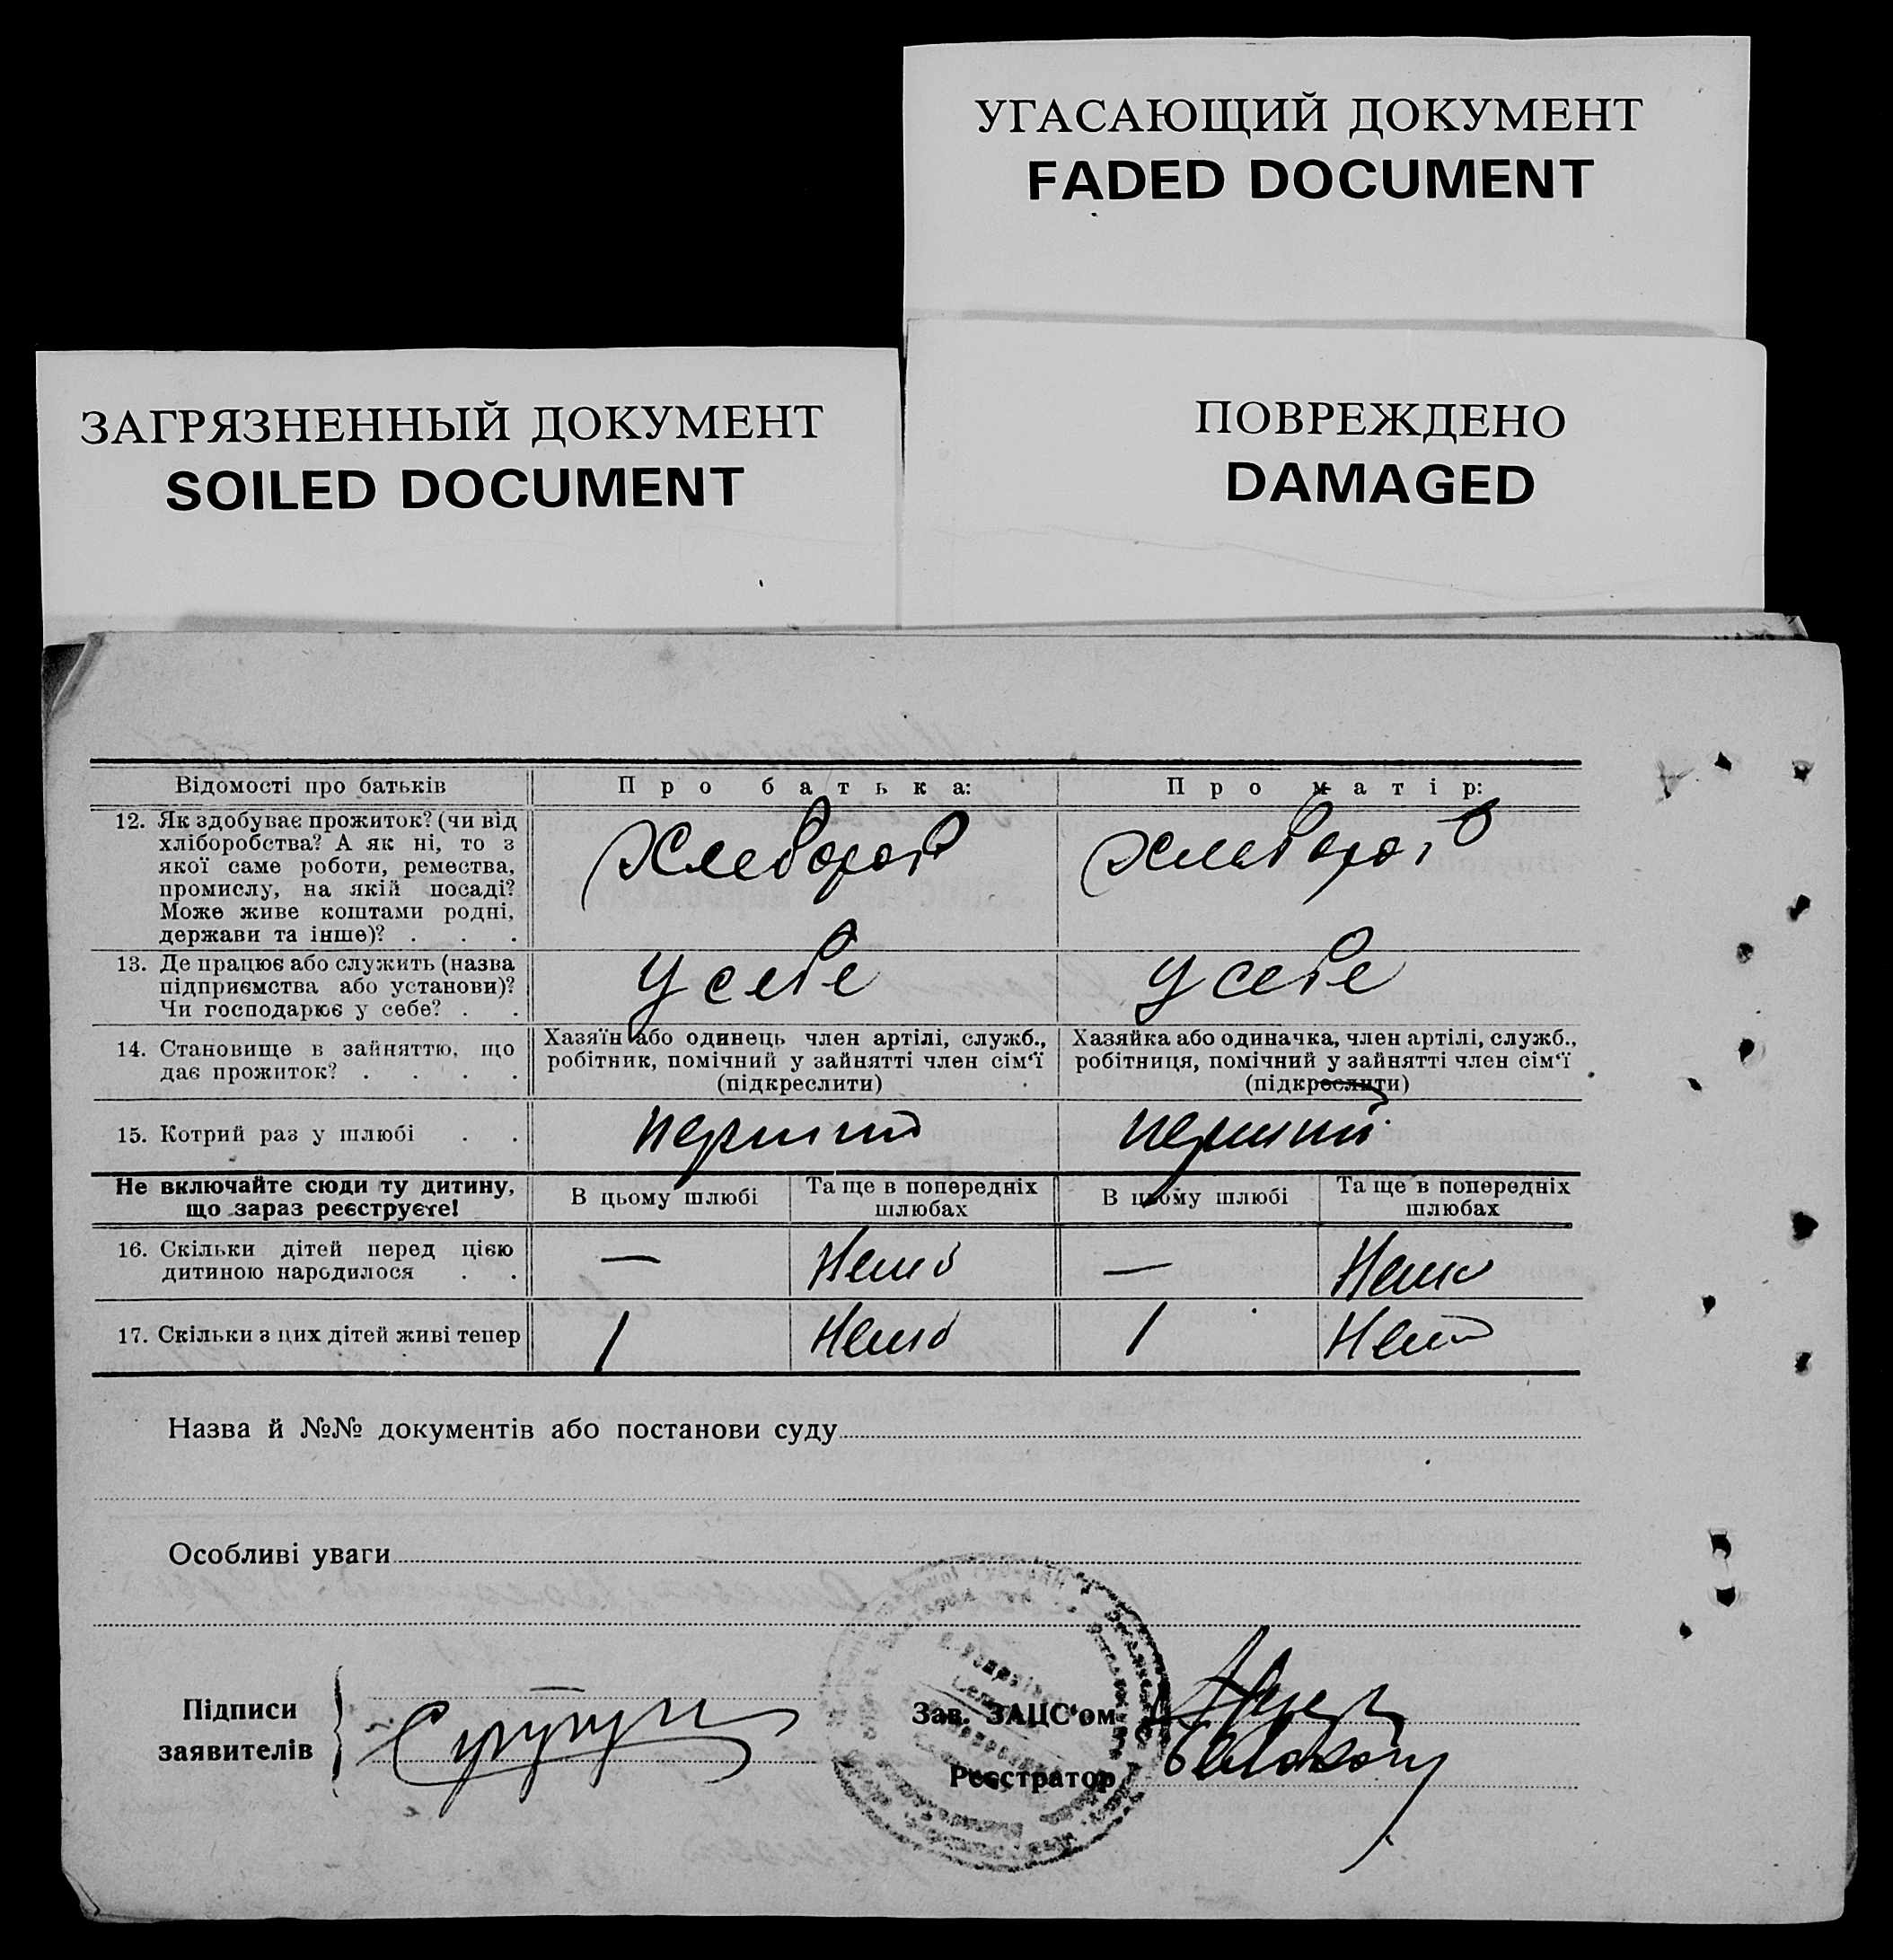 УГАСАЮЩИЙ ДОКУМЕНТ
FADED DOCUMENT
ЗАГРЯЗНЕННЫЙ ДОКУМЕНТ
SOILED DOCUMENT
ПОВРЕЖДЕНО
DAMAGED
Відомості про батьків
Про батька:
Про матір:
12. Як здобуває прожиток? (чи від
хліборобства? А як ні, то з
якої саме роботи, ремества,
промислу, на якій посаді?
Може живе коштами родні,
держави та інше)? . . .
Хлебороб
Хлебороб
13. Де працює або служить (назва
підприємства або установи)?
Чи господарює у себе? . .
У себе
У себе
14. Становище в зайняттю, що
дає прожиток? . . . .
Хазяїн або одинець член артілі, служб.,
робітник, помічний у зайнятті член сім'ї
(підкреслити)
Хазяйка або одиначка, член артілі, служб.,
робітниця, помічний у зайнятті член сім'ї
(підкреслити)
15. Котрий раз у шлюбі . .
перший
перший
Не включайте сюди ту дитину,
що зараз реєструєте!
В цьому шлюбі
Та ще в попередніх
шлюбах
В цьому шлюбі
Та ще в попередніх
шлюбах
16. Скільки дітей перед цією
дитиною народилося . .
—
—
17. Скільки з цих дітей живі тепер
1
1
Назва й №№ документів або постанови суду
Особливі уваги
Підписи
заявителів
Зав. ЗАЦС'ом
Реєстратор